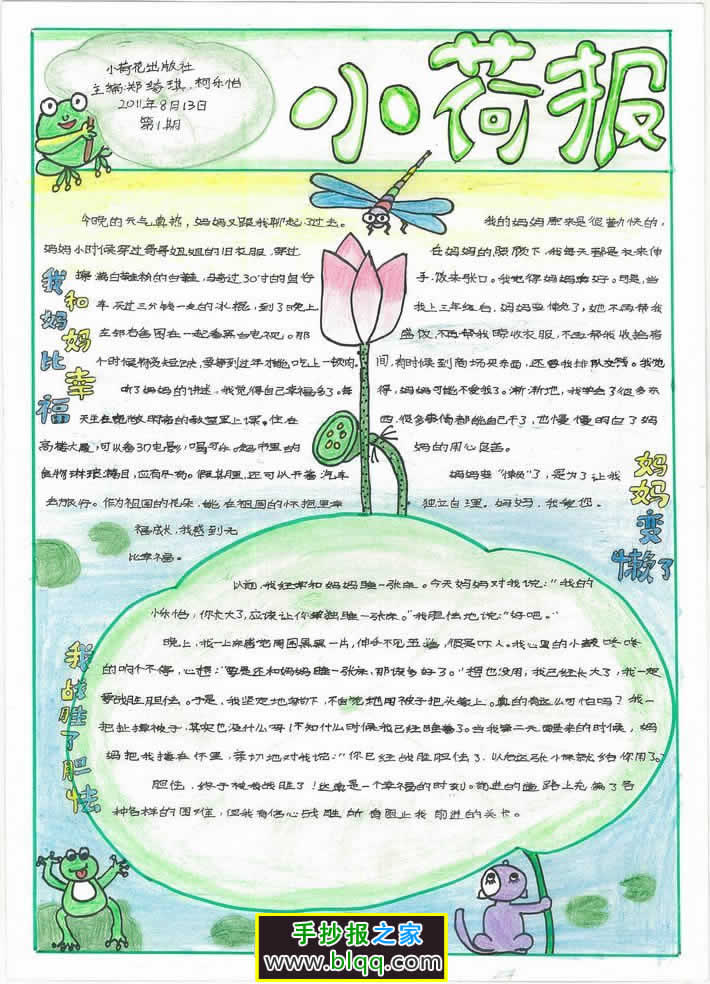 小荷花出版社
主编:郑绮琪、柯乐怡
2011年8月13日
第1期
小荷报
我和妈妈比幸福
今晚的天气真热，妈妈又跟我聊起了过去。
妈妈小时候穿过哥哥姐姐的旧衣服，穿过
擦满白鞋粉的白鞋，骑过30寸的自行
车，买过三分钱一支的冰棍，到了晚上
左邻右舍围在一起看黑白电视。那
个时候物资短缺，要等到过年才能吃上一顿肉。
听了妈妈的讲述，我觉得自己幸福多了。每
天坐在宽敞明亮的教室里上课。住在
高楼大厦，可以看3D电影，喝可乐。超市里的
食物琳琅满目，应有尽有。假期里，还可以开着汽车
去旅行。作为祖国的花朵，能在祖国的怀抱里幸
福成长，我感到无
比幸福。
妈妈变懒了
我的妈妈原来是很勤快的，
在妈妈的照顾下，我每天都是衣来伸
手，饭来张口。我觉得妈妈真好。可是，当
我上三年级后，妈妈变懒了，她不再帮我
盛饭，不再帮我晾收衣服，不再帮我收拾房
间，有时候到商场买东西，还要我排队交钱。我觉
得，妈妈可能不爱我了。渐渐地，我学会了很多东
西，很多事情都能自己干了，也慢慢明白了妈
妈的用心良苦。
妈妈变“懒”了，是为了让我
独立自理。妈妈，我爱您。
我战胜了胆怯
以前，我经常和妈妈睡一张床。今天妈妈对我说：“我的
小乐怡，你长大了，应该让你单独睡一张床。”我胆怯地说：“好吧。”
晚上，我一上床感觉周围黑黑一片，伸手不见五指，很是吓人。我心里的小鼓咚咚
的响个不停，心想：“要是还和妈妈睡一张床，那该多好了。”想也没用，我已经长大了，我一定
要战胜胆怯。于是，我坚定地躺下，不由自觉地用被子把头蒙上。真的有这么可怕吗？我一
把扯掉被子，其实也没什么呀！不知什么时候我已经睡着了。当我第二天醒来的时候，妈
妈把我搂在怀里，亲切地对我说：“你已经战胜胆怯了，以后这张小床就给你用了。”
胆怯，终于被我战胜了！这真是一个幸福的时刻。前进的道路上充满了各
种各样的困难，但我有信心战胜所有阻止我前进的关卡。
手抄报之家
www.blqq.com